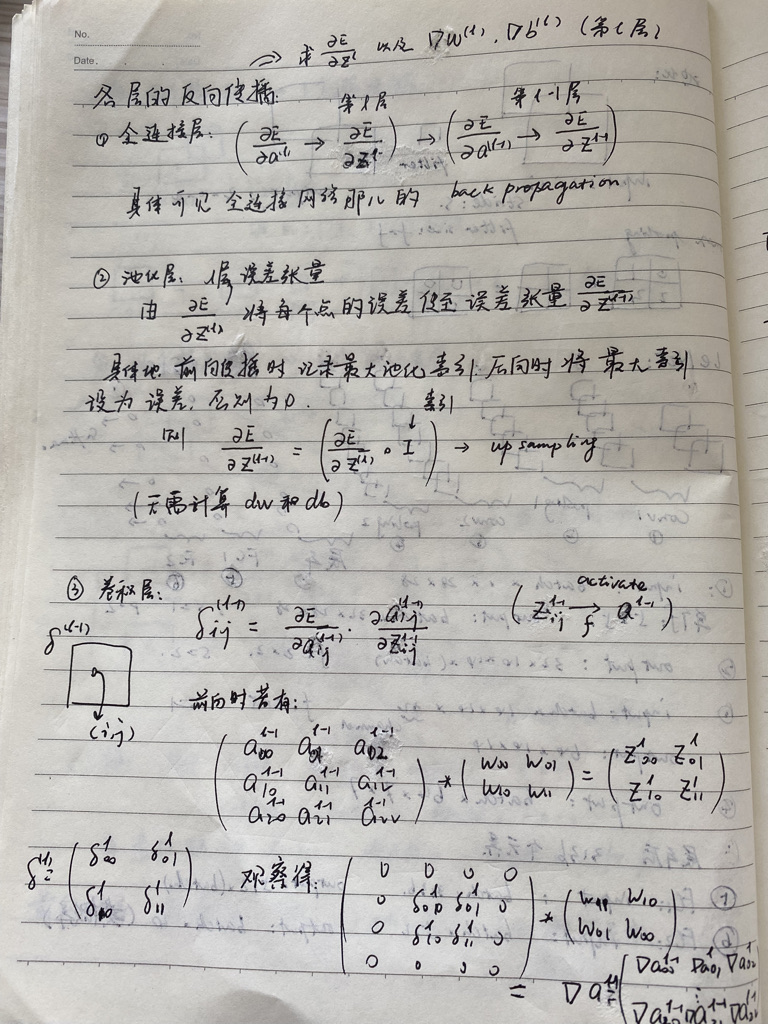 No.
Date.
=> 求 ∂E/∂Z^l 以及 ∇w^(l), ∇b^(l) (第l层)
各层的反向传播:
第l层 第l-1层
① 全连接层: (∂E/∂a^(l) → ∂E/∂Z^l) → (∂E/∂a^(l-1) → ∂E/∂Z^(l-1))
具体可见 全连接网络那儿的 back propagation
② 池化层: l层误差张量
由 ∂E/∂Z^(l) 将每个点的误差传至误差张量 ∂E/∂Z^(l-1)
具体地 前向传播时记录最大池化索引. 后向时将最大索引
设为误差, 否则为0.
索引
↓
则 ∂E/∂Z^(l-1) = (∂E/∂Z^(l) ∘ I) → up sampling
(无需计算 dw 和 db)
③ 卷积层: δij^(l-1) = ∂E/∂aij^(l-1) · ∂aij^(l-1)/∂Zij^(l-1) (Zij^(l-1) activate→f a^(l-1))
δ^(l-1)
(i,j)
前向时若有:
a00^(l-1) a01^(l-1) a02^(l-1)
a10^(l-1) a11^(l-1) a12^(l-1) * (w00 w01 / w10 w11) = (Z00^l Z01^l / Z10^l Z11^l)
a20^(l-1) a21^(l-1) a22^(l-1)
δ^(l) = (δ00^l δ01^l / δ10^l δ11^l) 观察得:
0 0 0 0
0 δ00^l δ01^l 0
0 δ10^l δ11^l 0
0 0 0 0
* (w11 w10 / w01 w00)
= ∇a^(l-1) = (∇a00^(l-1) ∇a01^(l-1) ∇a02^(l-1)